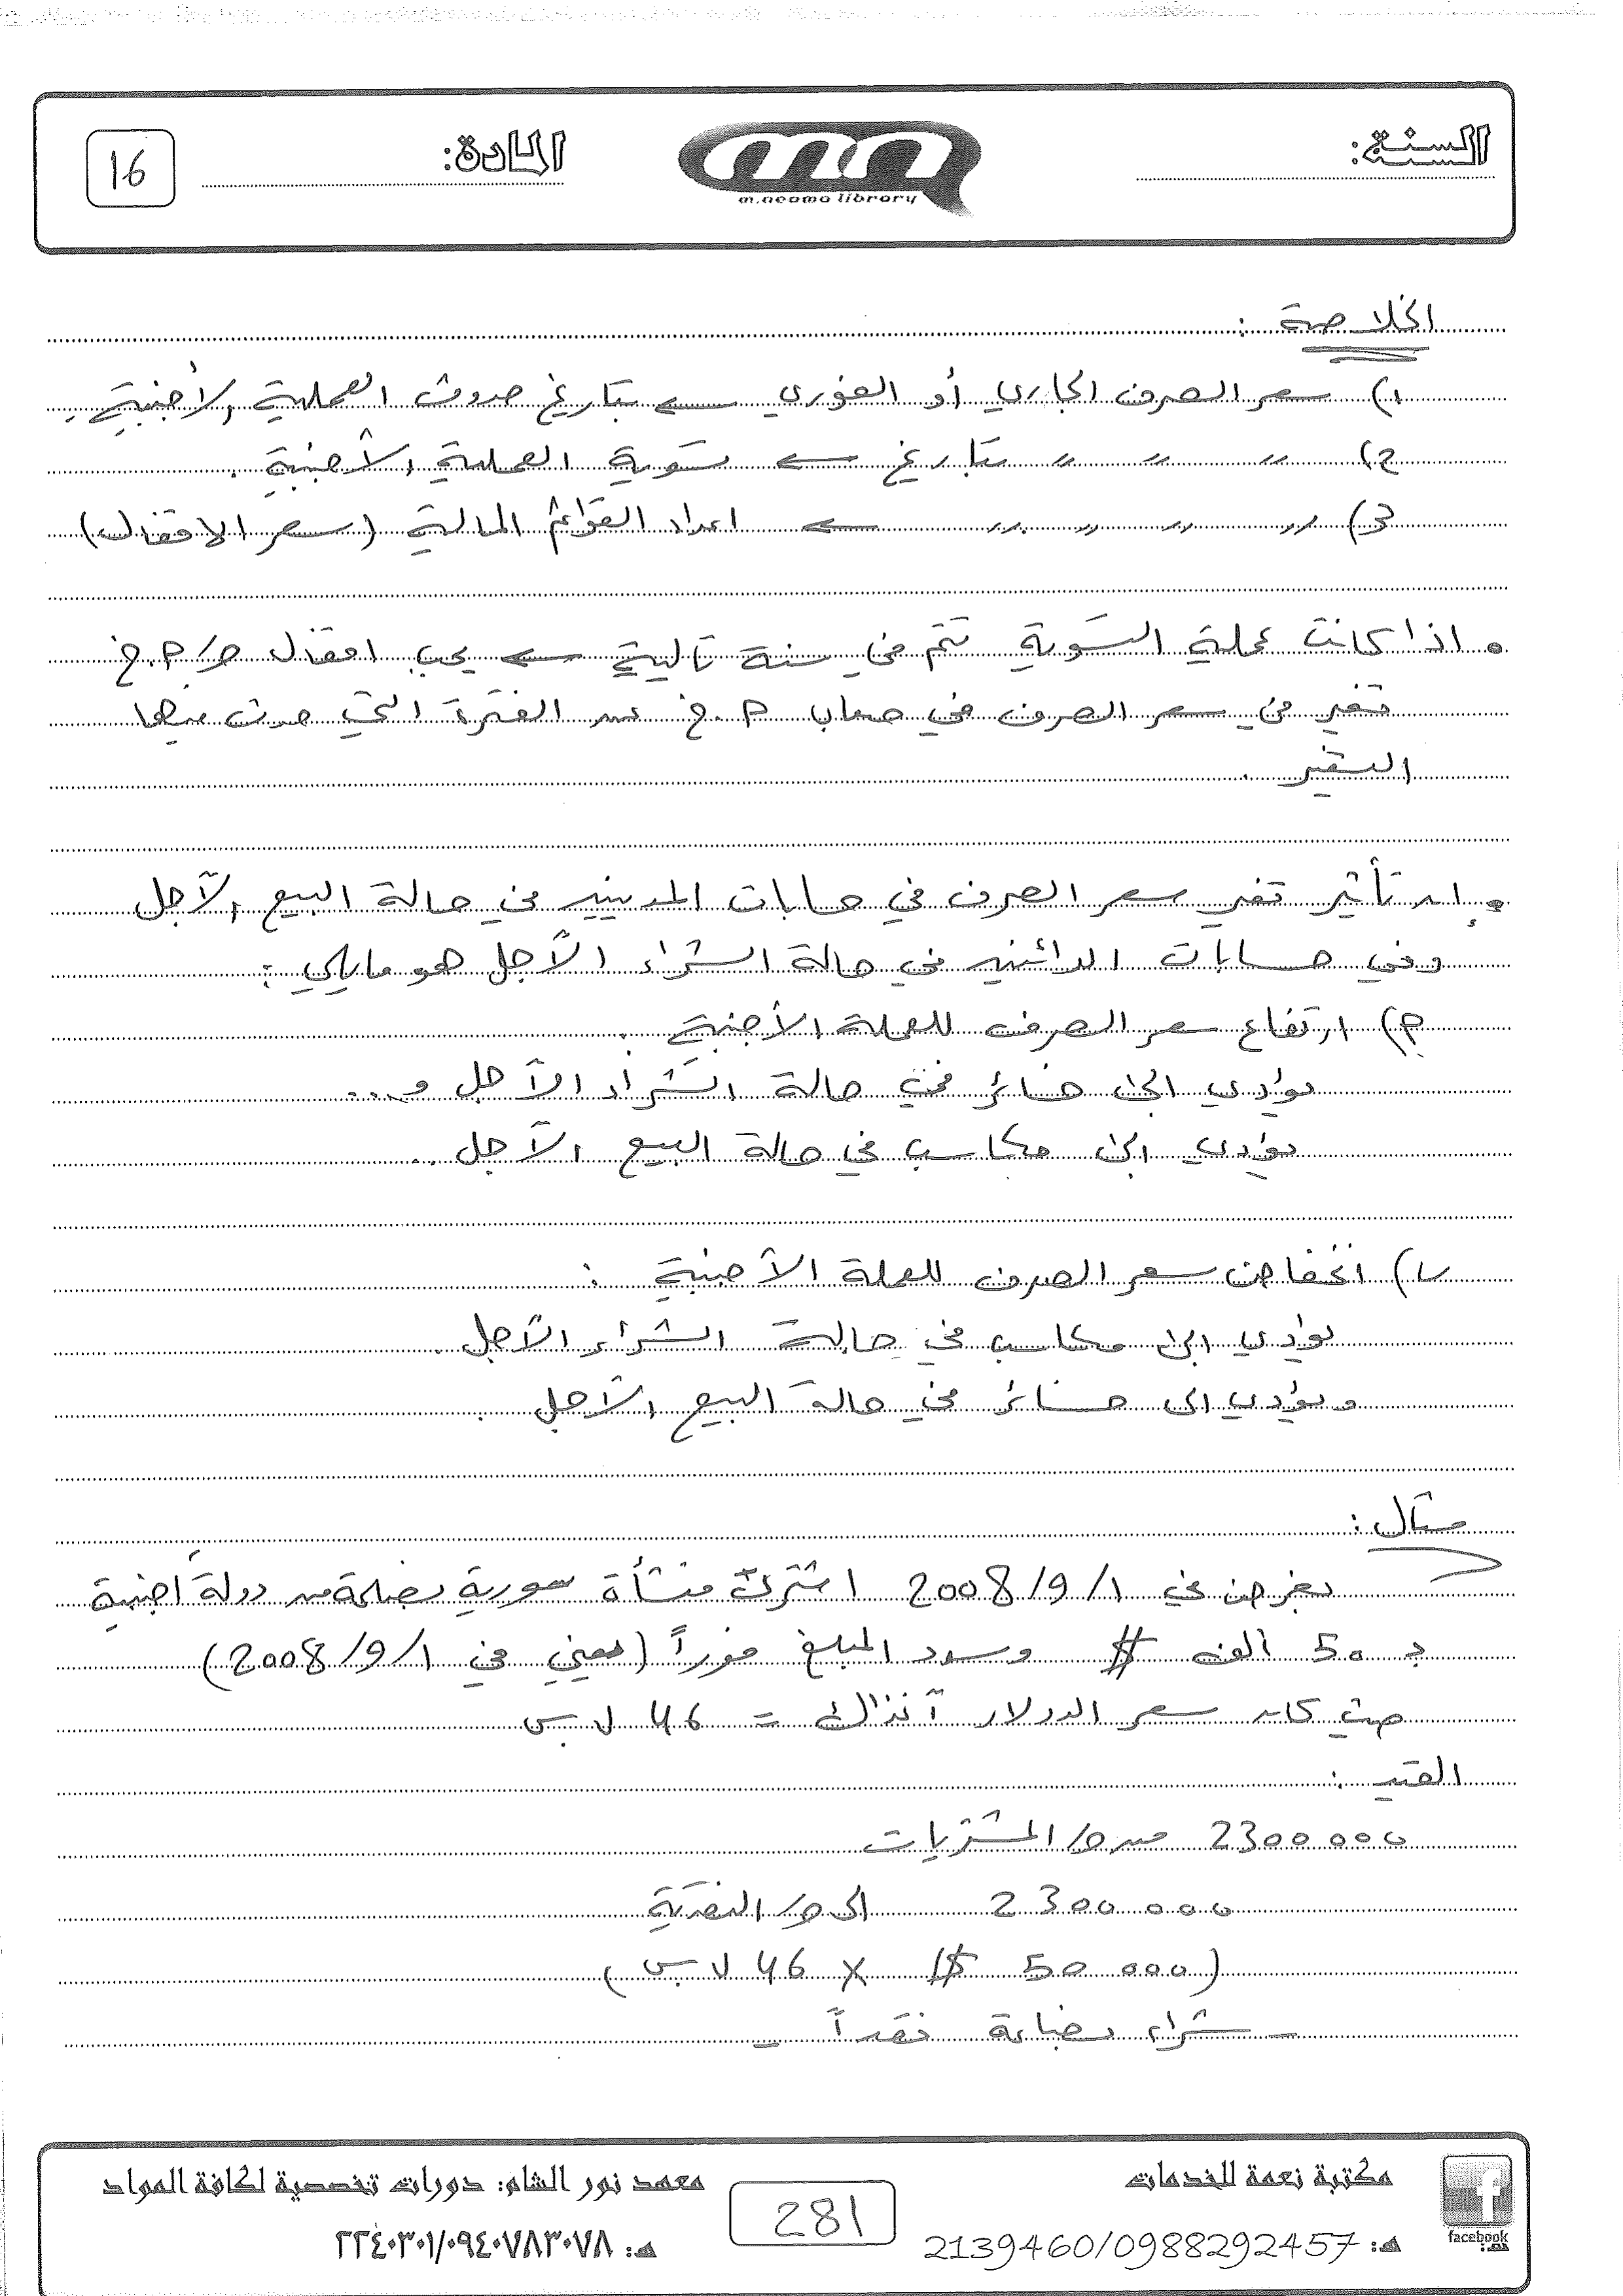 السنة:
m.neama library
المادة:
16
الخلاصة :
1) سعر الصرف الجاري أو الفوري ← بتاريخ حدوث العملية الأجنبية.
2) " " " بتاريخ ← تسوية العملية الأجنبية.
3) " " " " ← اعداد القوائم المالية (سعر الاقفال)
• اذا كانت عملية التسوية تتم في سنة تالية ← يجب اقفال ح/ م.خ
تغير في سعر الصرف في حساب م.خ عن الفترة التي حدث فيها
التغير .
• إن تأثير تغير سعر الصرف في حسابات المدينين في حالة البيع الآجل
وفي حسابات الدائنين في حالة الشراء الآجل هو مايلي :
م) ارتفاع سعر الصرف للعملة الأجنبية .
يؤدي الى خسائر في حالة الشراء الآجل و...
يؤدي الى مكاسب في حالة البيع الآجل ..
ب) انخفاض سعر الصرف للعملة الأجنبية :
يؤدي الى مكاسب في حالة الشراء الآجل.
ويؤدي الى خسائر في حالة البيع الآجل .
مثال :
بفرض في 2008/9/1 اشترت منشأة سورية بضاعة من دولة اجنبية
بـ 50 ألف $ وسدد المبلغ فوراً (يعني في 2008/9/1)
حيث كان سعر الدولار آنذاك = 46 ل.س
القيد :
2300000 من ح/ المشتريات
2300000 الى ح/ النقدية
(50000 $ × 46 ل.س)
ـ شراء بضاعة نقداً ـ
facebook
مكتبة نعمة للخدمات
هـ: 2139460/0988292457
281
معهد نور الشام: دورات تخصصية لكافة المواد
هـ: ٢٢٤٠٣٠١/٠٩٤٠٧٨٣٠٧٨